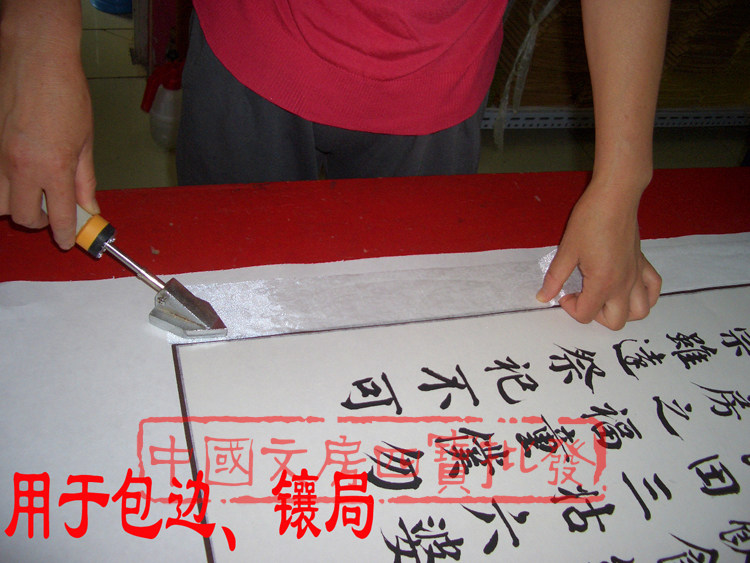 雖遠祭祀不可
房之福童僕勿
田三姑六婆
中國文房四寶批發
用于包边、镶局